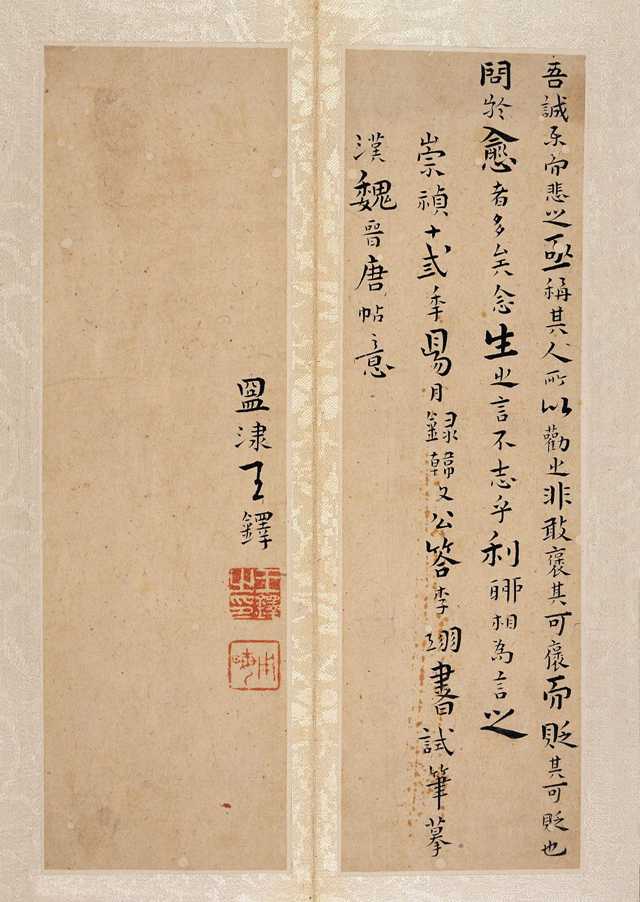 吾誠樂而悲之亟稱其人所以勸之非敢褒其可褒而貶其可貶也
問於愈者多矣念生之言不志乎利聊相為言之
崇禎十弍季昜月錄韓文公答李翊書試筆摹
漢魏晉唐帖意
孟津王鐸
王鐸之印